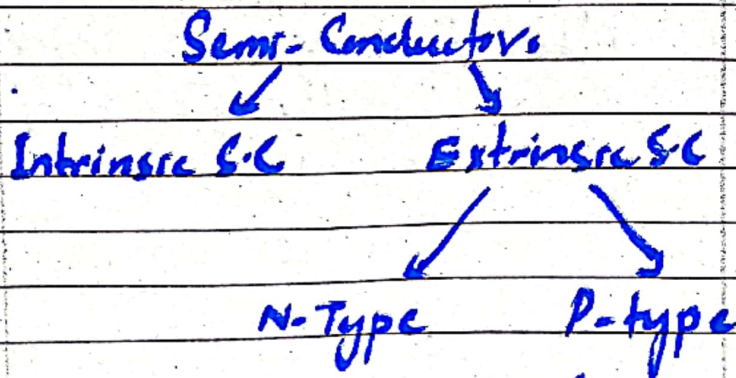 Semi-Conductor.
Intrinsic S.C Extrinsic S.C
N-Type P-type